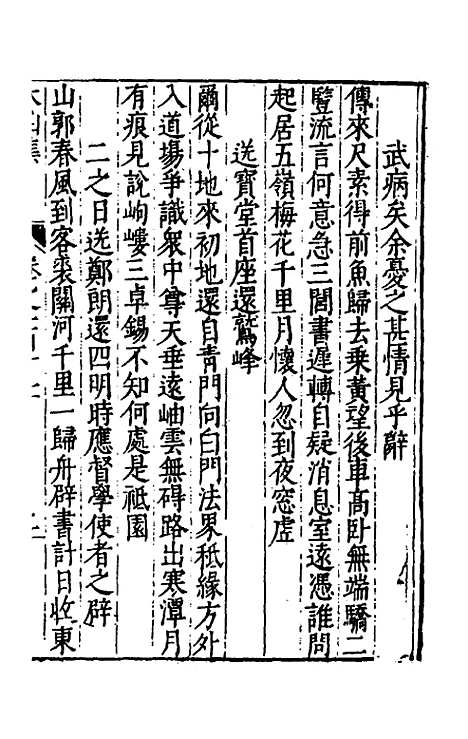 武病矣余憂之甚情見乎辭
傳來尺素得前魚歸去乗黃望後車高臥無端驕二
豎流言何意急三閭書遲轉自疑消息室遠憑誰問
起居五嶺梅花千里月懷人忽到夜窓虚
送寶堂首座還鷲峰
爾從十地來初地還自青門向白門法界秪緣方外
入道場爭識衆中尊天垂遠岫雲無碍路出寒潭月
有痕見說岣嶁三卓錫不知何處是祗園
二之日送鄭朗還四明時應督學使者之辟
山郭春風到客裘關河千里一歸舟辟書計日收東